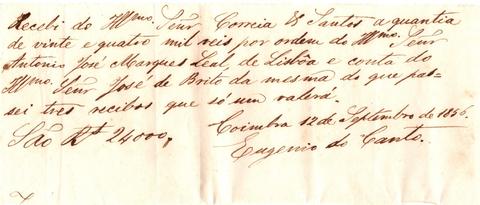 Recebi do Illmo. Senr. Correia & Santos a quantia
de vinte e quatro mil reis por ordem do Illmo. Senr
Antonio José Marques Leal, de Lisbôa e conta do
Illmo. Senr José de Brito da mesma do que pas-
sei tres recibos que só um valerá.
São Rs 24000,
Coimbra 12 de Septembro de 1856.
Eugenio do Canto.